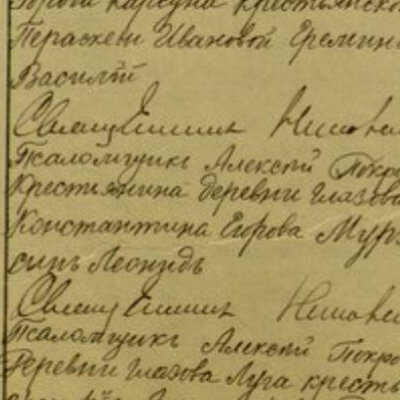 города Карсуна крестьянской
Параскеви Ивановой Еремин
Василiй
Священникъ Николай
Псаломщикъ Алексѣй Покро
Крестьянина деревни Глазова
Константина Егорова Мур
сынъ Леонидъ
Священникъ Николай
Псаломщикъ Алексѣй Покро
Деревни Глазова Луга кресть